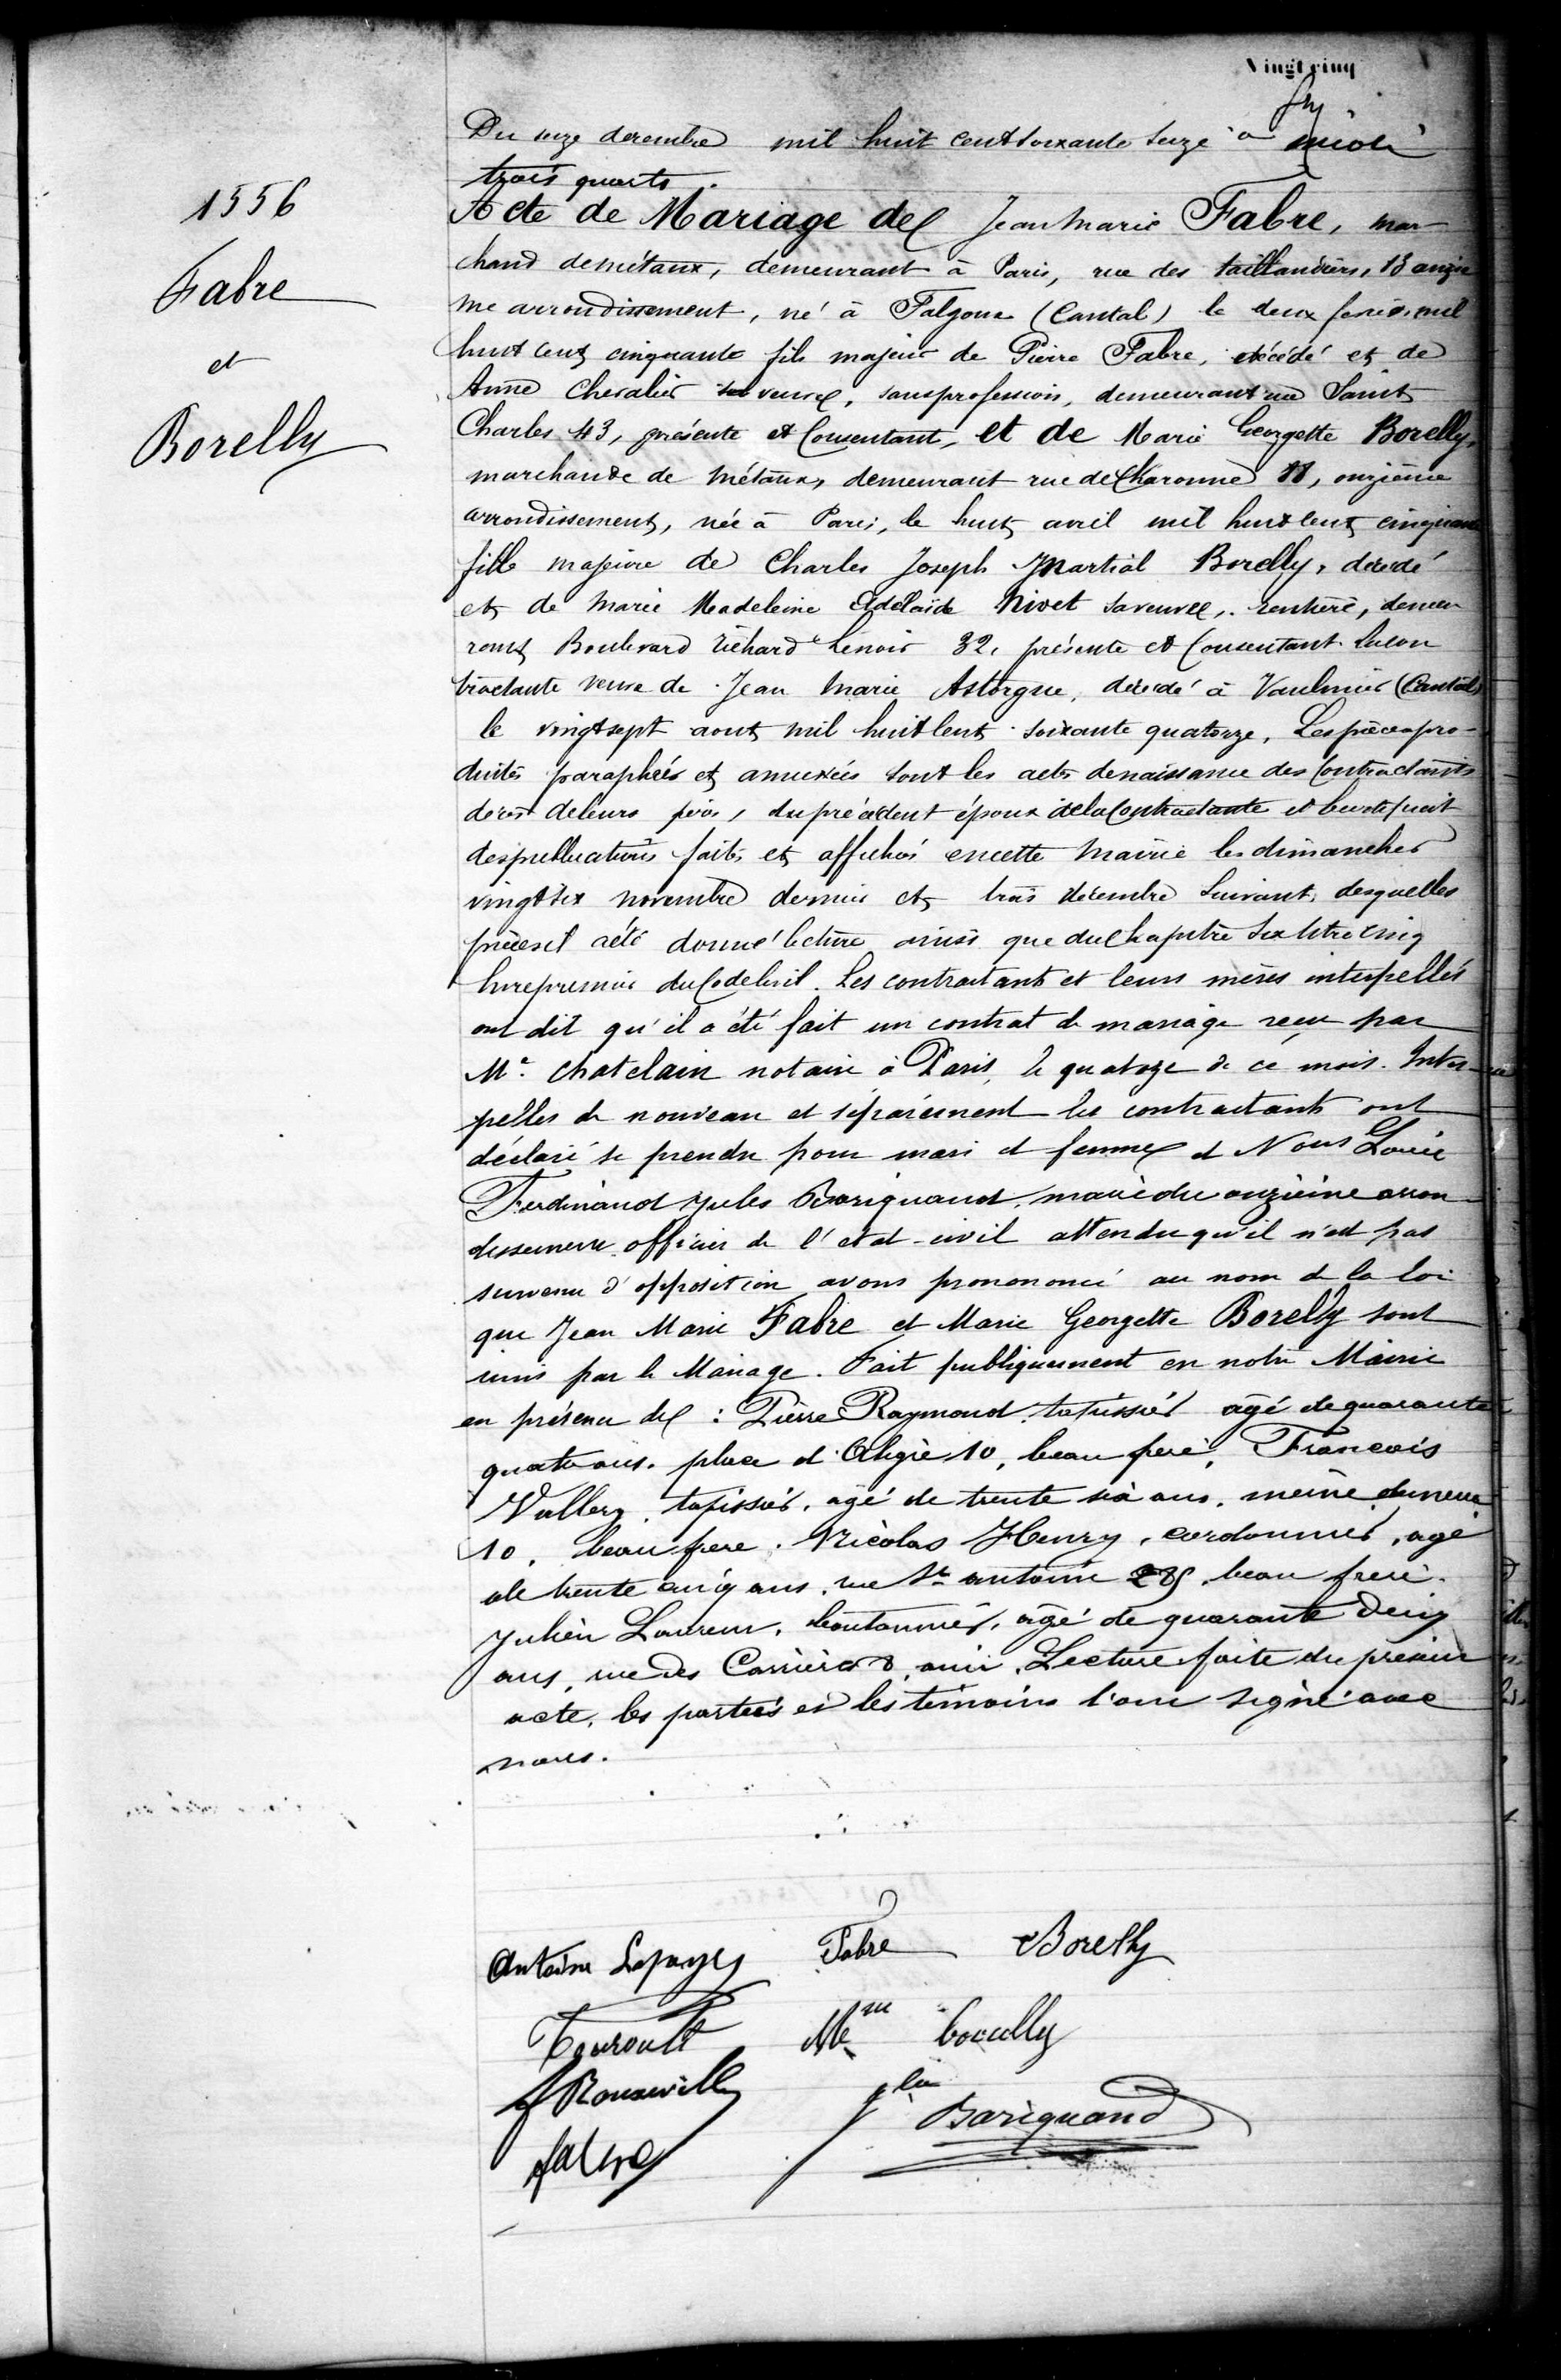 Vingt cinq
Du seize decembre mil huit cent soixante seize à midi
trois quarts.
1556
Fabre
et
Borelly
Acte de Mariage de Jean Marie Fabre, mar-
chand de métaux, demeurant à Paris, rue des taillandiers, 13 onziè
me arrondissement, né à Falgoux (Cantal) le deux février mil
huit cent cinquante fils majeur de Pierre Fabre, décédé et de
Anne Chevalier sa veuve, sans profession, demeurant rue Saint
Charles 43, présente et Consentant, et de Marie Georgette Borelly,
marchande de métaux, demeurant rue de Charonne, onzième
arrondissement, née à Paris, le huit avril mil huit cent cinquante
fille majeure de Charles Joseph Martial Borelly, décédé
et de Marie Madeleine Adelaïde Nivet sa veuve, rentière, demeu
rant Boulevard Richard Lenoir 32, présente et Consentant. La con
tractante veuve de Jean Marie Astorgue, décédé à Vaulmier (Cantal)
le vingt sept aout mil huit cent soixante quatorze, Les pièces pro-
duites paraphées et annexées sont les actes de naissance des Contractants
décès de leurs pères, du précédent époux de la Contractante et le certificat
des publications faites et affichées en cette Mairie les dimanches
vingt six novembre dernier et trois décembre suivant, desquelles
pièces il a été donné lecture ainsi que du Chapitre six titre cinq
livre premier du Code Civil. Les contractants et leurs mères interpellés
ont dit qu'il a été fait un contrat de mariage reçu par
Me. Chatelain notaire à Paris, le quatorze de ce mois. Inter-
pellés de nouveau et séparément les contractants ont
déclaré se prendre pour mari et femme et Nous Louis
Ferdinand Jules Bariquand, maire du onzième arron-
dissement officier de l'etat-civil attendu qu'il n'est pas
survenu d'opposition avons pronononcé au nom de la loi
que Jean Marie Fabre et Marie Georgette Borelly sont
unis par le Mariage. Fait publiquement en notre Mairie
en présence de : Pierre Raymond, tapissier agé de quarante
quatre ans. place d'Aligre 10, beau frere, Francois
Vallery, tapissier, agé de trente six ans, même demeure
10, beau frere. Nicolas Henry, cordonnier, agé
de trente cinq ans, rue St antoine, beau frere.
Julien Laureur, boutonnier, agé de quarante deux
ans, rue des Carrières 8, ami. Lecture faite du présent
acte, les parties et les témoins l'ont signé avec
nous.
Antoine Fabre Borelly
Me
Bariquand